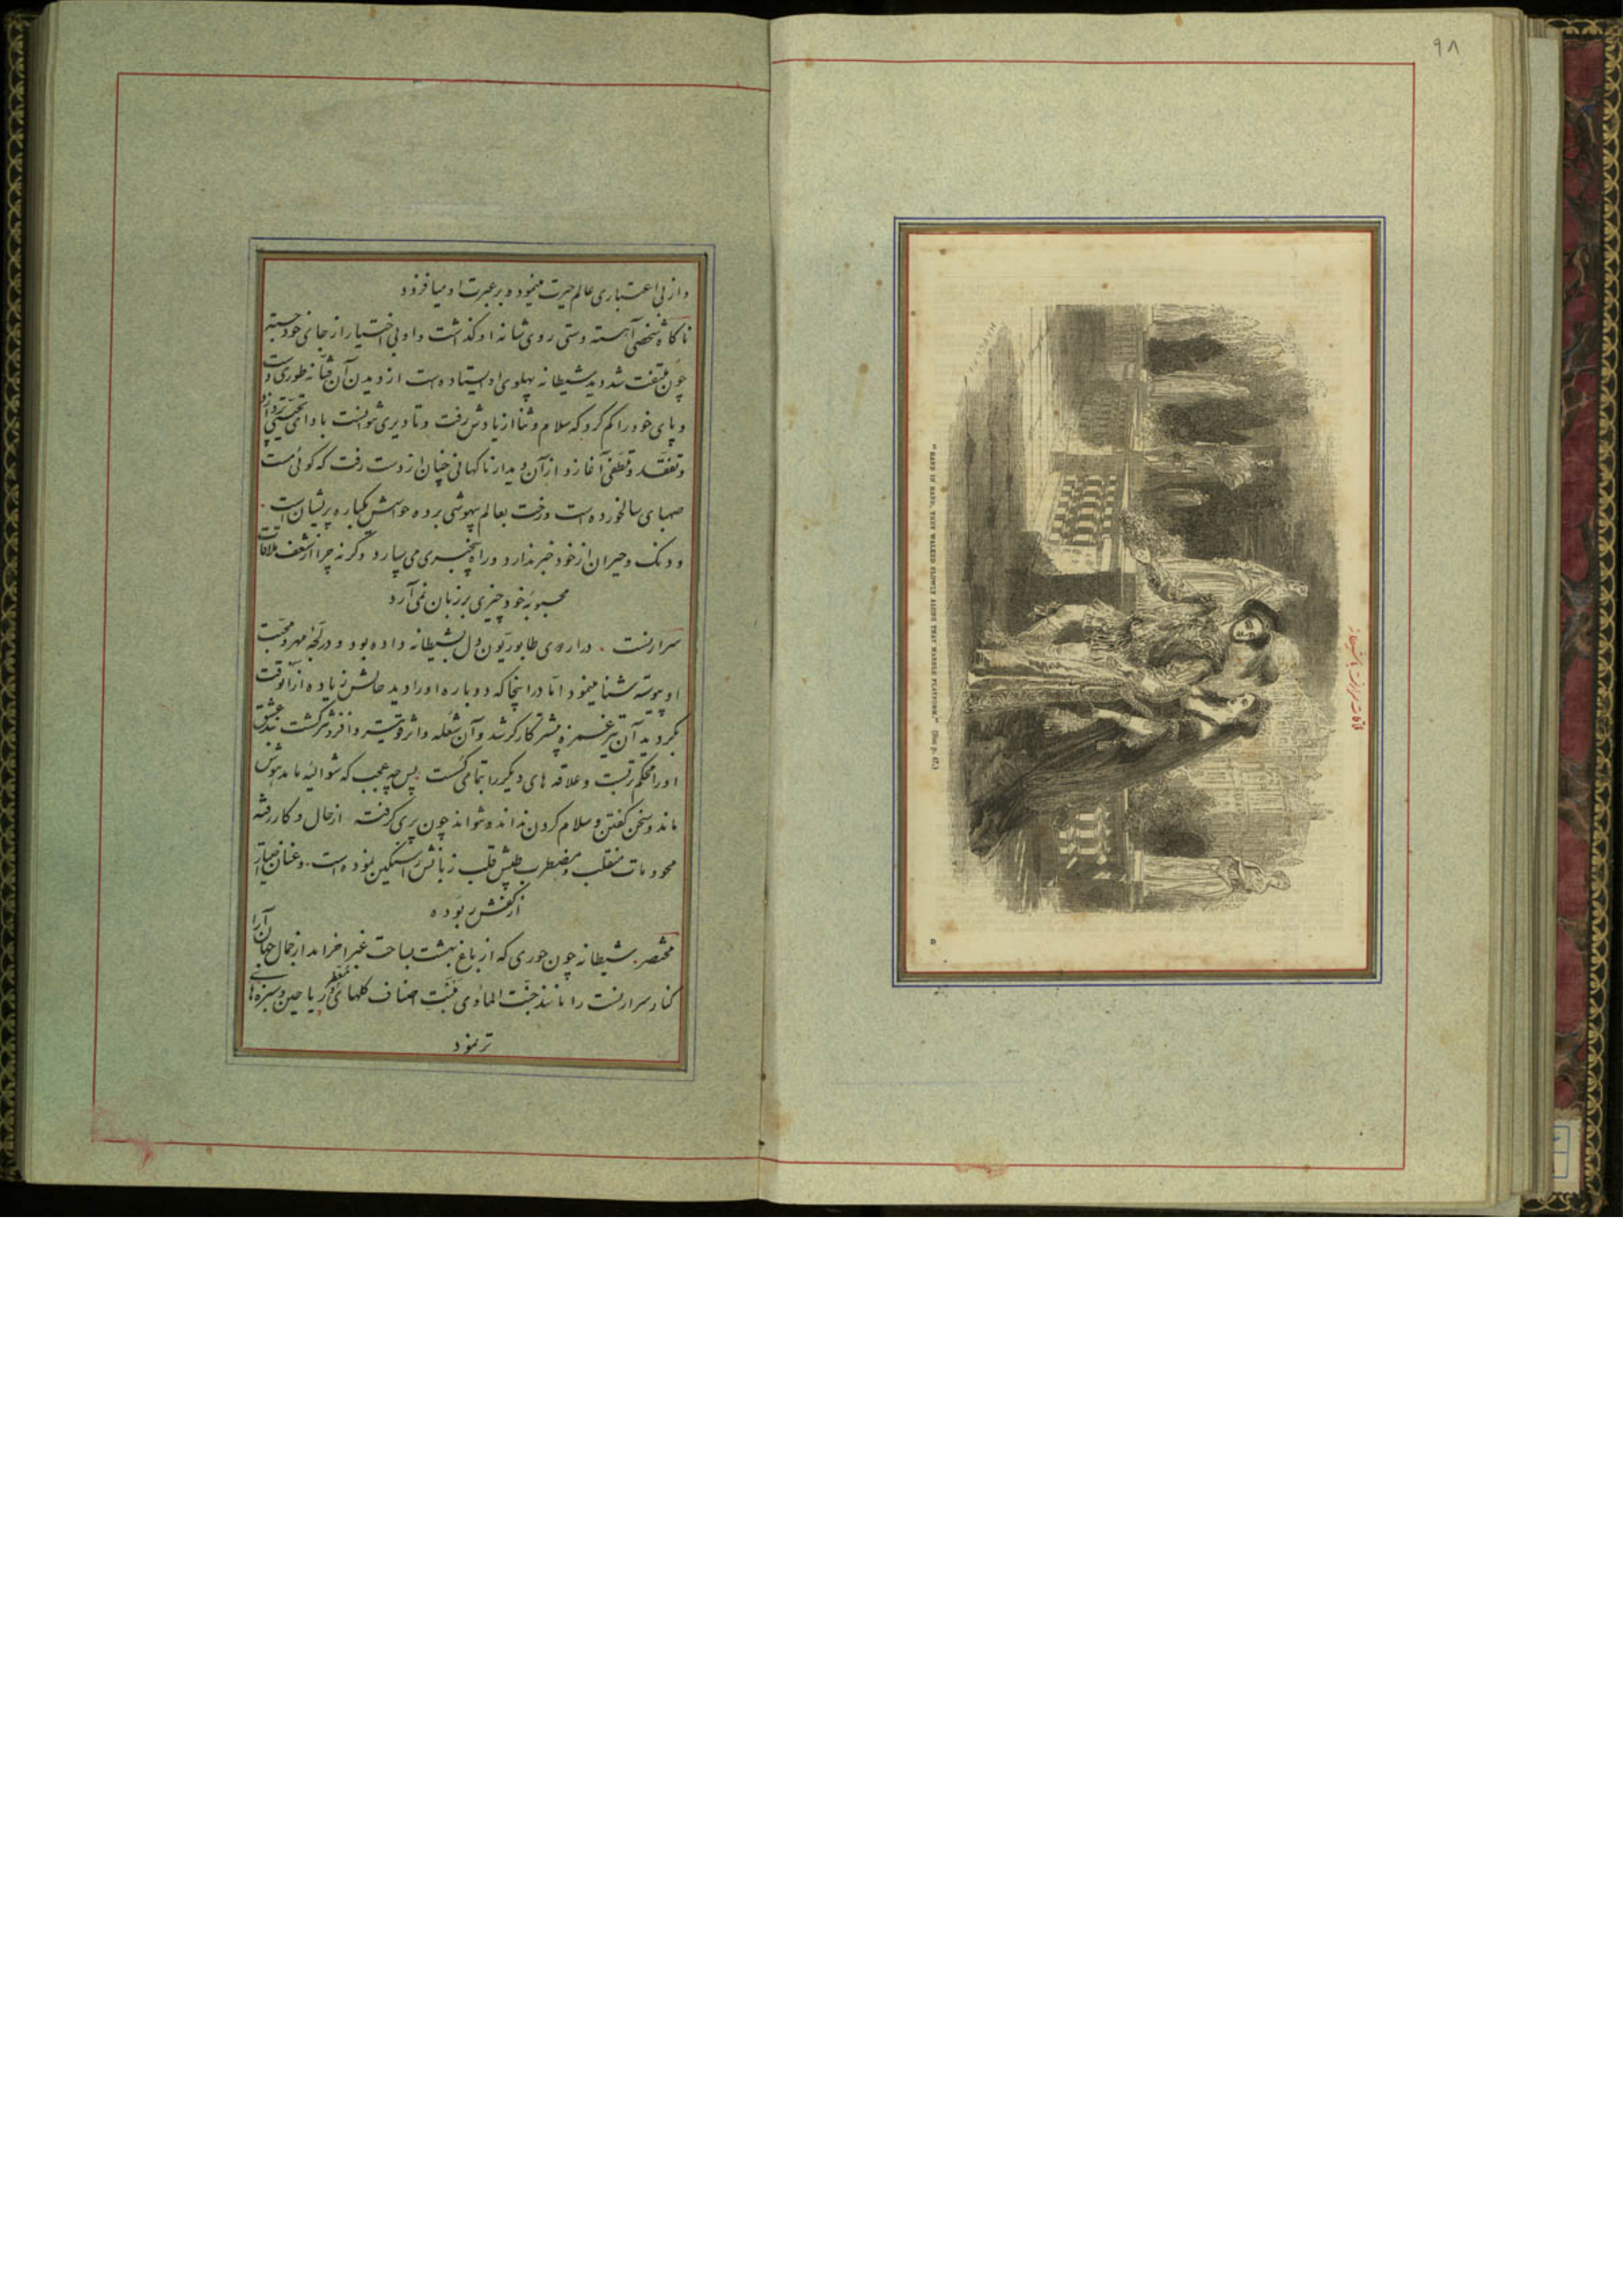 ۹۸
ملاقات سرارنست با شیطانه
"HAND IN HAND, THEY WALKED SLOWLY ALONG THAT MARBLE PLATFORM." (See p.
D
و از بی اعتباری عالم حیرت مینمود و بر عبرت او میافزود
ناکاه شخصی آهسته دستی روی شانه او کذاشت و او بی اختیار از جای خود جسته
چون ملتفت شد دید شیطانه پهلوی او ایستاده است از دیدن آن فتانه طوری دست
و پای خود را کم کرد که سلام و ثنا از یادش رفت و تا دیری نتوانست با وای تحیتی پردازد
و تفقد و تلطفی آغازد و از آن دیدار ناکهانی چنان از دست رفت که کوئی مست
صهبای سالخورده است و رخت بعالم بیهوشی برده حواسش یکباره پریشان است
و دنک و حیران از خود خبر ندارد و راه بیخبری می سپارد و کرنه چرا از شعف ملاقات
محبوبه خود چیزی بر زبان نمی آرد
سرارنست . در اردوی طابوریون دل بشیطانه داده بود و در لجه مهر و محبت
او پیوسته شنا مینمود اما در اینجا که دوباره او را دید حالش زیاده از آنوقت
بکردید آن تیر غمزه بیشتر کارکر شد و آن شعله را اثر قویتر و افزونتر کشت بند عشق
او را محکمتر بست و علاقه های دیکر را بتمامی کسست پس چه عجب که شوالیه ما مدهوش
ماند و سخن کفتن و سلام کردن نداند و نتواند چون پری کرفته از حال و کار رفته
محو و مات منقلب و مضطرب طپش قلب زبانش را سنکین نموده است. و عنان اختیار
از کفش ربوده
مختصر. شیطانه چون حوری که از باغ بهشت بساحت غبرا خرامد از جمال جهان آرا
کنار سرارنست را مانند جنت المأوی منبت اصناف کلهای معطر و ریاحین و سبزه های
تر نمود